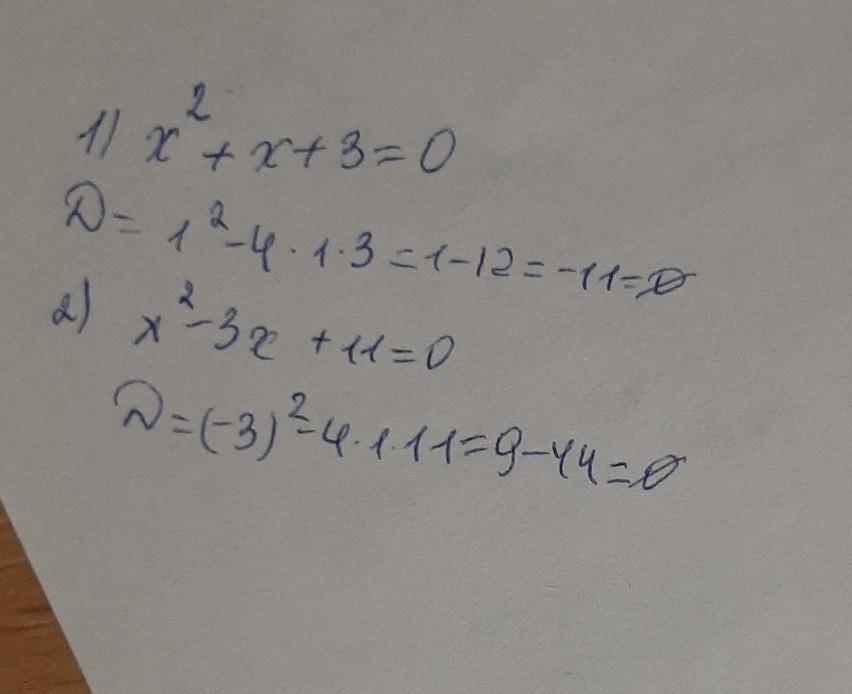 1) x² + x + 3 = 0
D = 1² - 4 · 1 · 3 = 1 - 12 = -11 = ∅
2) x² - 3x + 11 = 0
D = (-3)² - 4 · 1 · 11 = 9 - 44 = ∅